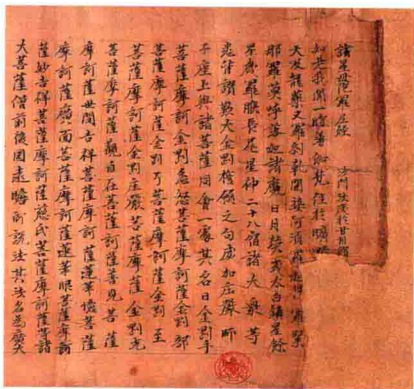 諸星母陀羅尼經 沙門法成於甘州譯
如是我聞一時薄伽梵住於曠野
天及龍藥叉羅剎乾闥婆阿須羅緊
那羅莫呼落迦諸魔日月熒惑太白鎮星餘
星歲羅睺長尾星神二十八宿諸大眾等
悉皆諸歎大金剛誓願之句莊加莊嚴師
子座上與諸菩薩同會一處其名曰金剛手
菩薩摩訶薩金剛忿怒菩薩摩訶薩金剛部
菩薩摩訶薩金剛弓菩薩摩訶薩金剛主
菩薩摩訶薩金剛莊嚴菩薩摩訶薩金剛光
菩薩摩訶薩觀自在菩薩摩訶薩普見菩薩
摩訶薩世間吉祥菩薩摩訶薩蓮華幢菩薩
摩訶薩廣面菩薩摩訶薩蓮華眼菩薩摩訶
薩妙吉祥菩薩摩訶薩慈氏菩薩摩訶薩等諸
大菩薩僧前後圍遶瞻所說法其法名為廣大